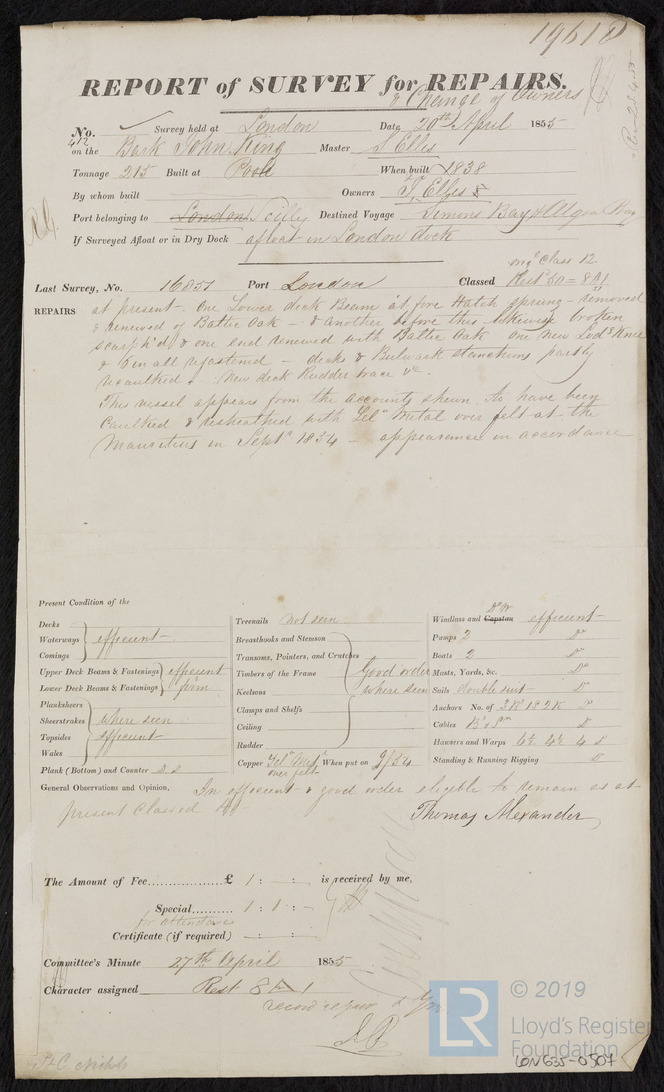 19618
REPORT of SURVEY for REPAIRS.
& Change of Owners
No. 412 Survey held at London Date 20th April 1855
on the Bark John King Master J Ellis
Tonnage 215 Built at Poole When built 1838
By whom built Owners J. Ellis &
Port belonging to London Scilly Destined Voyage Simons Bay & Algoa Bay
If Surveyed Afloat or in Dry Dock afloat in London dock
orig Class 12
Last Survey, No. 16851 Port London Classed Rest 50 = 8 A1
REPAIRS at present. One Lower deck Beam at fore Hatch sprung - removed
& renewed of Baltic Oak - & another before this likewise broken
scarph'd & one end renewed with Baltic Oak one new Lodg Knee
& 6 in all refastened - decks & Bulwark stanchions partly
recaulked. New deck Rudder brace &c.
This vessel appears from the accounts shewn, to have been
Caulked & resheathed with Yel Metal over felt at the
Mauritius in Sept 1854 - appearance in accordance
Present Condition of the
Decks
Waterways efficient
Comings
Upper Deck Beams & Fastenings efficient
Lower Deck Beams & Fastenings firm
Planksheers
Sheerstrakes where seen
Topsides efficient
Wales
Plank (Bottom) and Counter
Treenails not seen
Breasthooks and Stemson
Transoms, Pointers, and Crutches
Timbers of the Frame Good order
Keelsons where seen
Clamps and Shelfs
Ceiling
Rudder
Copper Yel Met over felt When put on 9/54
Windlass and Capstan efficient
Pumps 2 Do
Boats 2 Do
Masts, Yards, &c. Do
Sails double suit Do
Anchors No. of 3 B 1 S 2 K Do
Cables Do
Hawsers and Warps Do
Standing & Running Rigging Do
General Observations and Opinion, In efficient & good order eligible to remain as at
present Classed
Thomas Alexander
The Amount of Fee £ 1 : - : - is received by me,
Special 1 : 1 : -
for attendance
Certificate (if required) - : - : -
Committee's Minute 27th April 1855
Character assigned Rest 8 A 1
LR
© 2019
Lloyd's Register
Foundation
LON635-0507